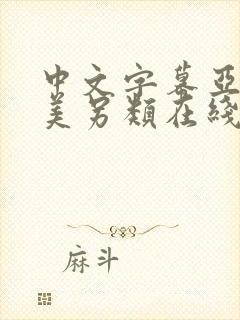 中文字幕亚
美另類在綫
麻斗